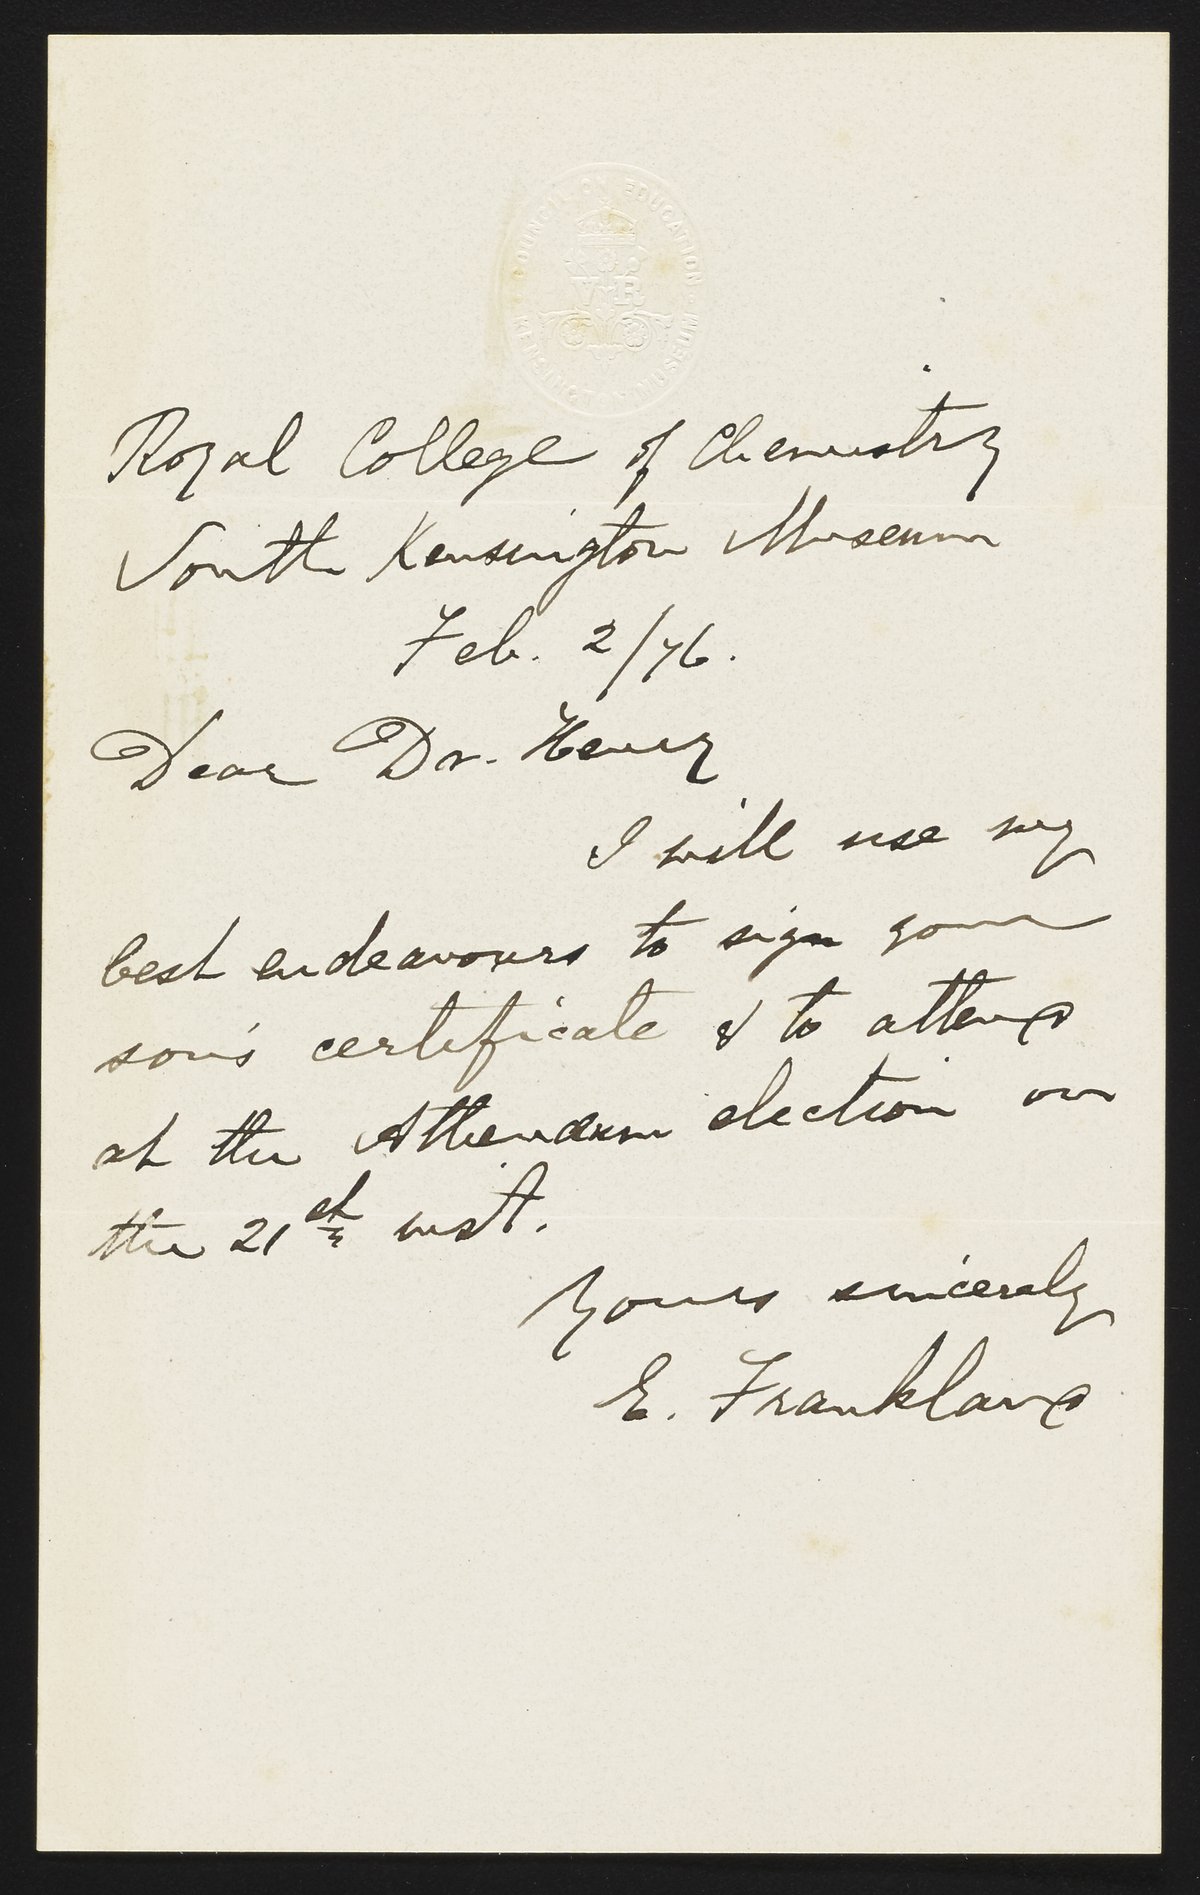 COUNCIL ON EDUCATION
VR
KENSINGTON MUSEUM
Royal College of Chemistry
South Kensington Museum
Feb. 2/76.
Dear Dr. Henry
I will use my
best endeavours to sign your
son's certificate & to attend
at the Athenæum election on
the 21st inst.
Yours sincerely
E. Frankland